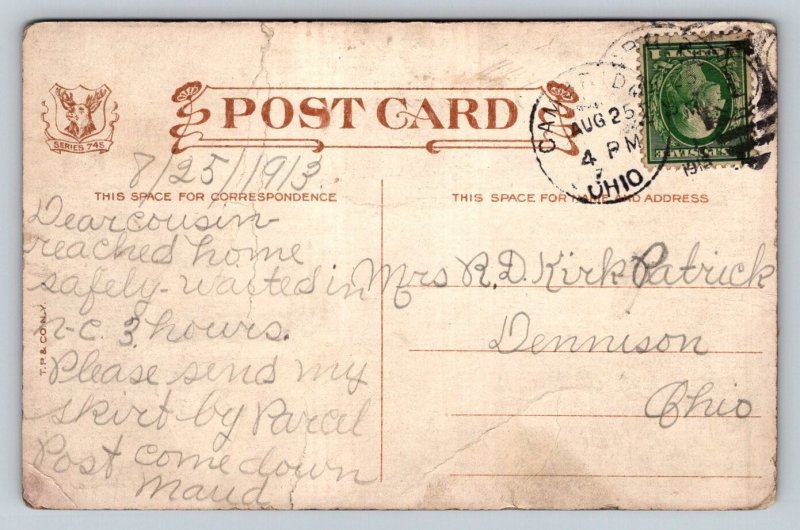 POST CARD
SERIES 745
CAMBRIDGE
AUG 25
4 PM
OHIO
8/25/1913
THIS SPACE FOR CORRESPONDENCE
THIS SPACE FOR NAME AND ADDRESS
Dear cousin
reached home
safely - waited in
n-c 3 hours.
Please send my
skirt by Parcel
Post come down
Maud
Mrs R. D. Kirk Patrick
Dennison
Ohio
T. P. & CO. N.Y.